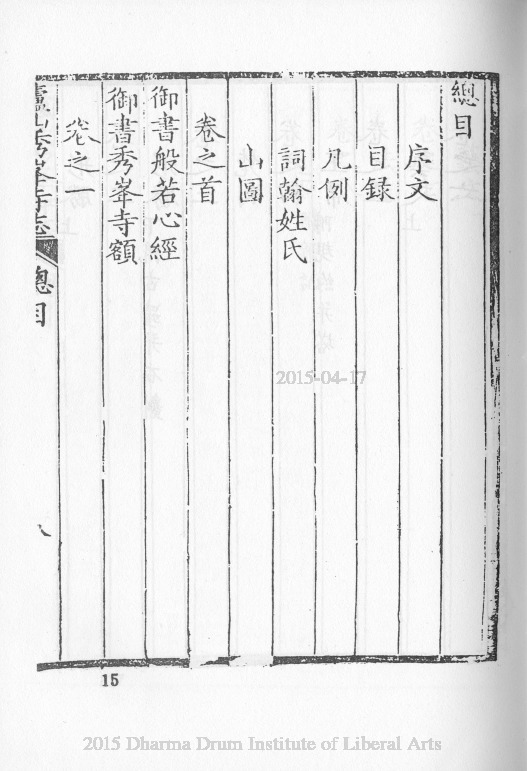 總目
序文
目録
凡例
詞翰姓氏
山圖
卷之首
御書般若心經
御書秀峯寺額
卷之一
廬山秀峯寺志
總目
2015-04-17
15
2015 Dharma Drum Institute of Liberal Arts